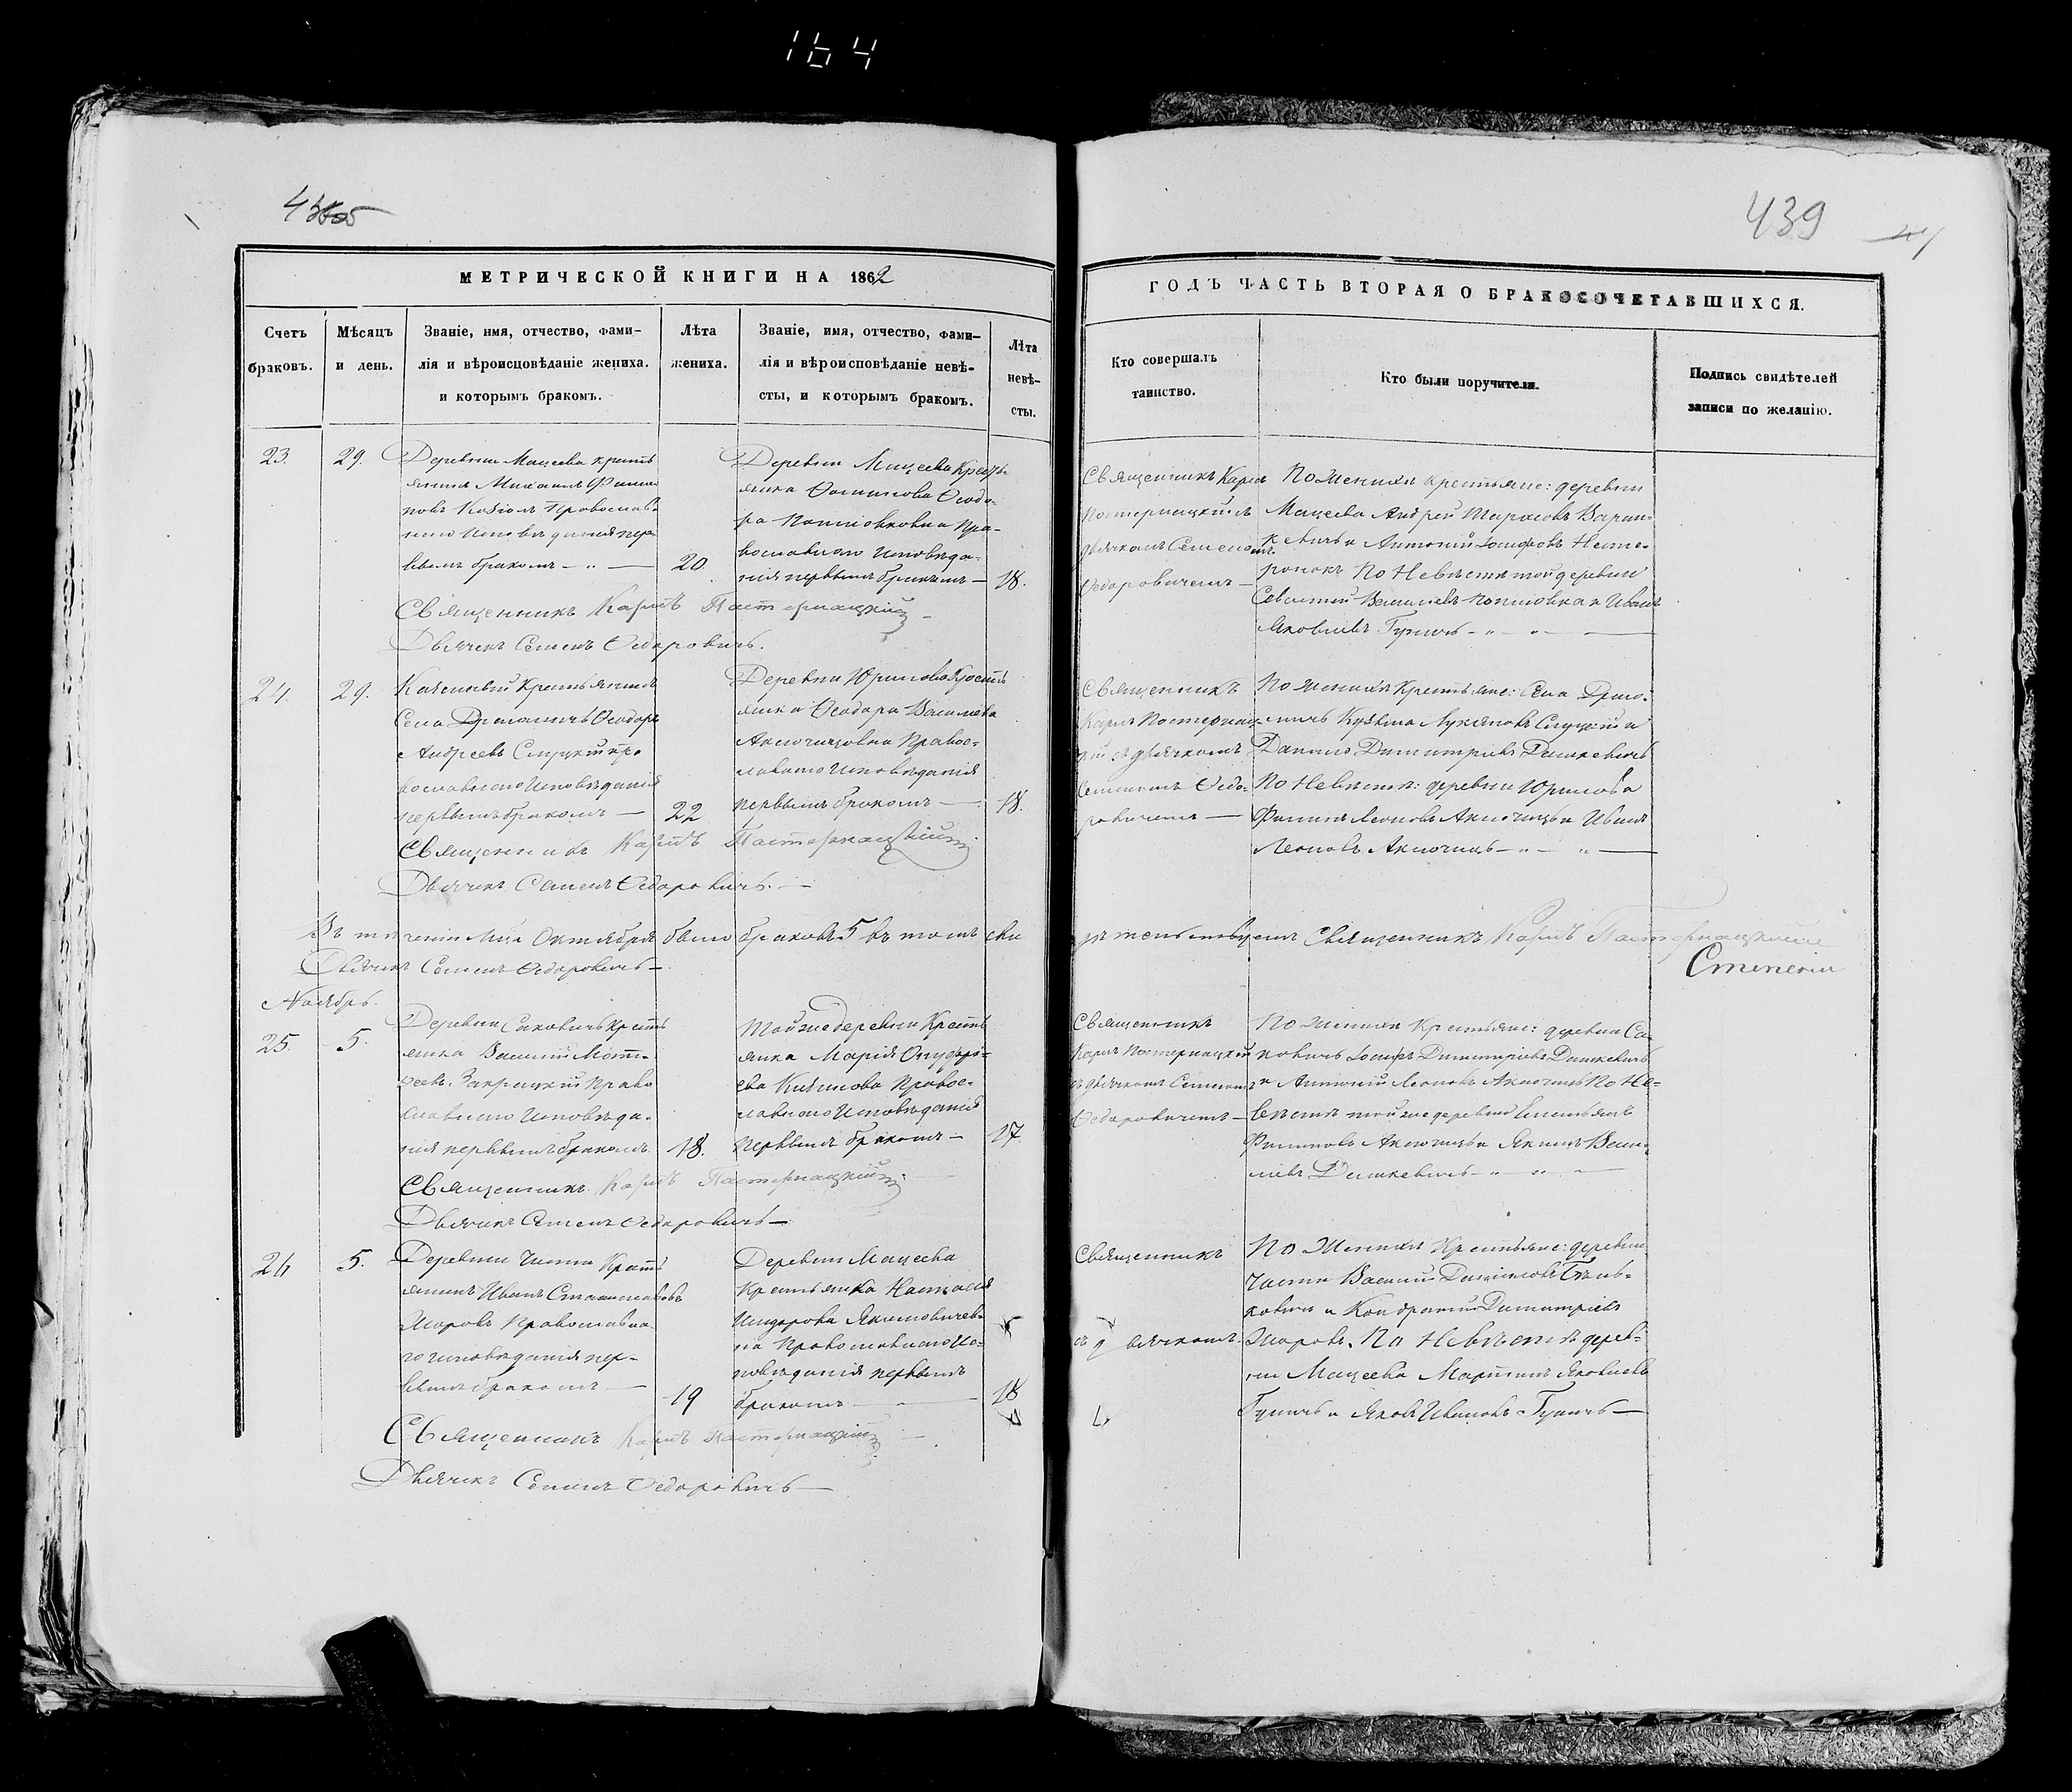 164
439
МЕТРИЧЕСКОЙ КНИГИ НА 1862
ГОДЪ ЧАСТЬ ВТОРАЯ О БРАКОСОЧЕТАВШИХСЯ.
Счетъ браковъ.
Мѣсяцъ и день.
Званіе, имя, отчество, фами-
лія и вѣроисповѣданіе жениха.
и которымъ бракомъ.
Лѣта жениха.
Званіе, имя, отчество, фами-
лія и вѣроисповѣданіе невѣ-
сты, и которымъ бракомъ.
Лѣта
невѣ-
сты.
Кто совершалъ
таинство.
Кто были поручители.
Подпись свидѣтелей
записи по желанію.
23.
29.
Деревни Мацеева кресть
янинъ Михаилъ
новъ Козіолъ Православ-
наго Исповѣданія пер
вымъ бракомъ
20.
Деревни Мацеева Кресть-
янка Ѳеодо-
ра Пра-
вославнаго Исповѣда-
нія первымъ бракомъ
18.
Священникъ Карлъ
Пастернацкій съ
дьячкомъ Семеномъ
Ѳедоровичемъ
По Женихѣ крестьяне: деревни
Мацеева Андрей Тарасовъ
и Антоній Іосифовъ
По Невѣстѣ той деревни
и Иванъ
Яковлевъ Гуличъ
Священникъ Карлъ Пастернацкій
Дьячекъ Семенъ Ѳедоровичъ.
24.
29.
Крестьянинъ
Села Ѳеодоръ
Андреевъ Слуцкій пра
вославнаго Исповѣданія
первымъ бракомъ
22
Деревни Юрилова Кресть
янка Ѳеодора Василева
Аксючицовна Правос-
лавнаго Исповѣданія
первымъ бракомъ
18.
Священникъ
Карлъ Пастернац-
кій съ дьячкомъ
Семеномъ Ѳедо-
ровичемъ
По Женихѣ Крестьяне: Села
Кузьма Лукьяновъ Слуцкій и
Данило Димитріевъ Дашкевичъ
По Невѣстѣ: деревни Юрилова
Филипъ Леоновъ Аксючицъ и Иванъ
Леоновъ Аксючицъ
Священникъ Карлъ Пастернацкій
Дьячекъ Семенъ Ѳедоровичъ.
Въ теченіи М-ца Октября было браковъ 5 въ томъ сви
дѣтельствуетъ Священникъ Карлъ Пастернацкій
Дьячекъ Семенъ Ѳедоровичъ
Ноябрь.
25.
5.
Деревни Саковичъ Кресть
Василій Мат-
ѳеевъ Закрицкій Право
славнаго Исповѣда-
нія первымъ бракомъ
18.
Той же деревни Кресть
янка Марія Онуфрі-
ева Правос-
лавнаго Исповѣданія
первымъ бракомъ
17.
Священникъ
Карлъ Пастернацкій
съ дьячкомъ Семеномъ
Ѳедоровичемъ
По Женихѣ Крестьяне: деревни Са-
ковичъ Іосифъ Димитріевъ Дашкевичъ
и Антоній Леоновъ Аксючицъ По Не-
вѣстѣ той же деревни Емельянъ
Филиповъ Аксючицъ и Якимъ Васи-
ліевъ Дашкевичъ
Священникъ Карлъ Пастернацкій
Дьячекъ Семенъ Ѳедоровичъ
26
5.
Деревни Чисти Кресть
янинъ Иванъ Станиславовъ
Жаровъ Православна
го исповѣданія пер-
вымъ бракомъ
19
Деревни Мацеева
Крестьянка Настасія
Исидорова Якимовичев-
на Православнаго Ис-
повѣданія первымъ
бракомъ
18
Священникъ
съ дьячкомъ
По Женихѣ Крестьяне: деревни
Чисти Василій Даниловъ
и Кондратій Димитріевъ
Жаровъ. По Невѣстѣ дерев-
ни Мацеева Мартинъ Яковлевъ
Гуличъ и Яковъ Ивановъ Гуличъ
Священникъ Карлъ Пастернацкій
Дьячекъ Семенъ Ѳедоровичъ